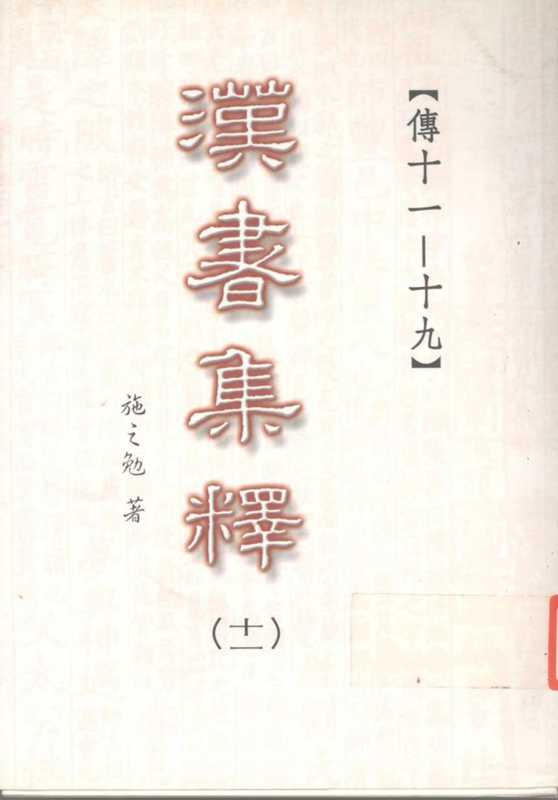 【傳十一—十九】
漢書集釋
(十一)
施之勉 著